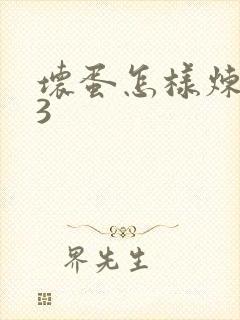 壞蛋怎樣煉
3
界先生